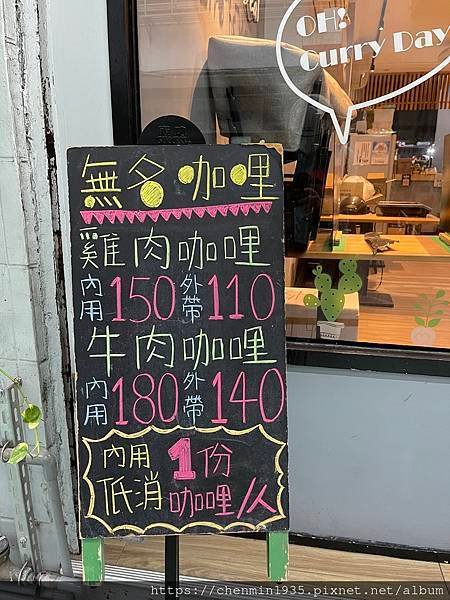 OH!
Curry Day
無名咖哩
雞肉咖哩
內用150 外帶110
牛肉咖哩
內用180 外帶140
內用1份
低消咖哩/人
https://chenmin1935.pixnet.net/album